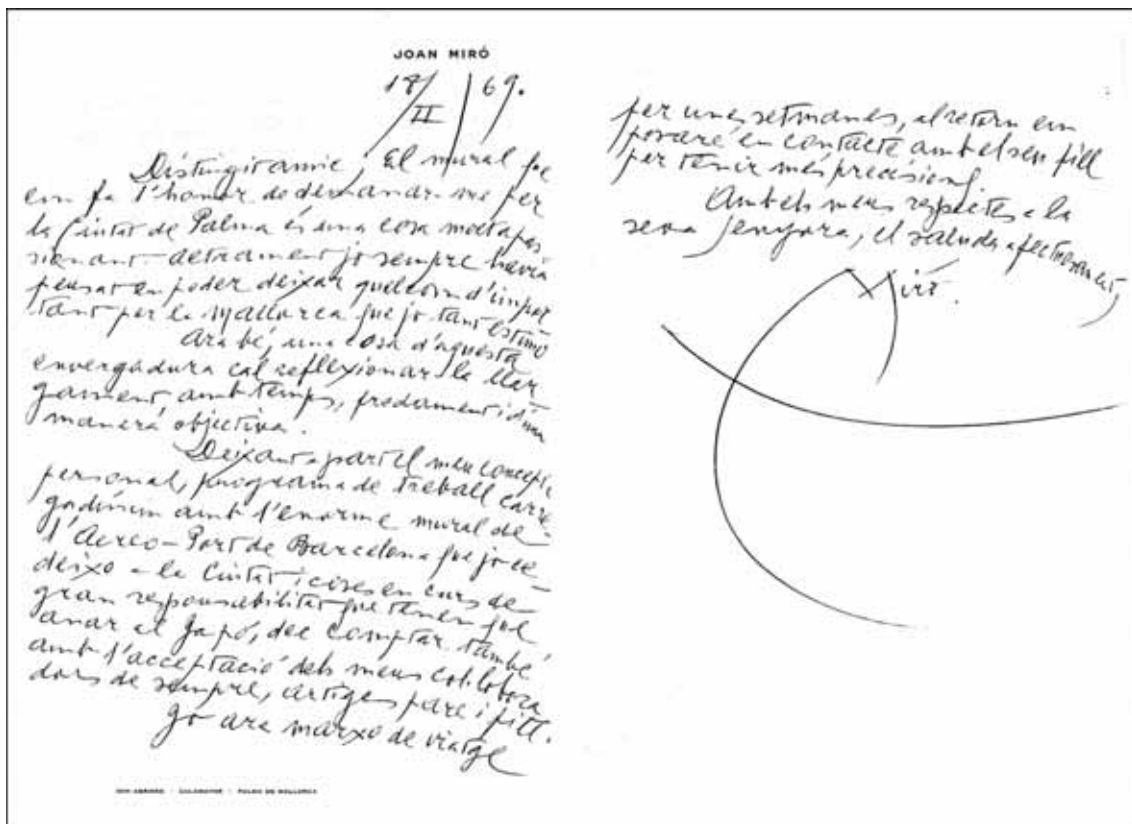 JOAN MIRÓ
18/II/69.
Distingit amic, El mural que
em fa l'honor de demanar-me per
la Ciutat de Palma és una cosa molt apas
sionant. jo sempre havia
pensat en poder deixar quelcom d'impor
tant per la Mallorca que jo tant estimo
Ara bé, una cosa d'aquesta
envergadura cal reflexionar-la llar
gament, amb temps, fredament i d'una
manera objectiva.
Deixant a part el meu concepte
personal, programa de treball carre-
gadíssim amb l'enorme mural de
l'Aereo-Port de Barcelona que jo
deixo a la Ciutat i coses en curs de
gran responsabilitat que tenen que
anar al Japó, dec comptar també,
amb l'acceptació dels meus col·labora
dors de sempre, Artigas pare i fill.
Jo ara marxo de viatge
SON ABRINES - CALAMAYOR - PALMA DE MALLORCA
per unes setmanes, al retorn em
posaré en contacte amb el seu fill
per tenir més precisions.
Amb els meus respectes a la
seva Senyora, el saluda afectuosament,
Miró.